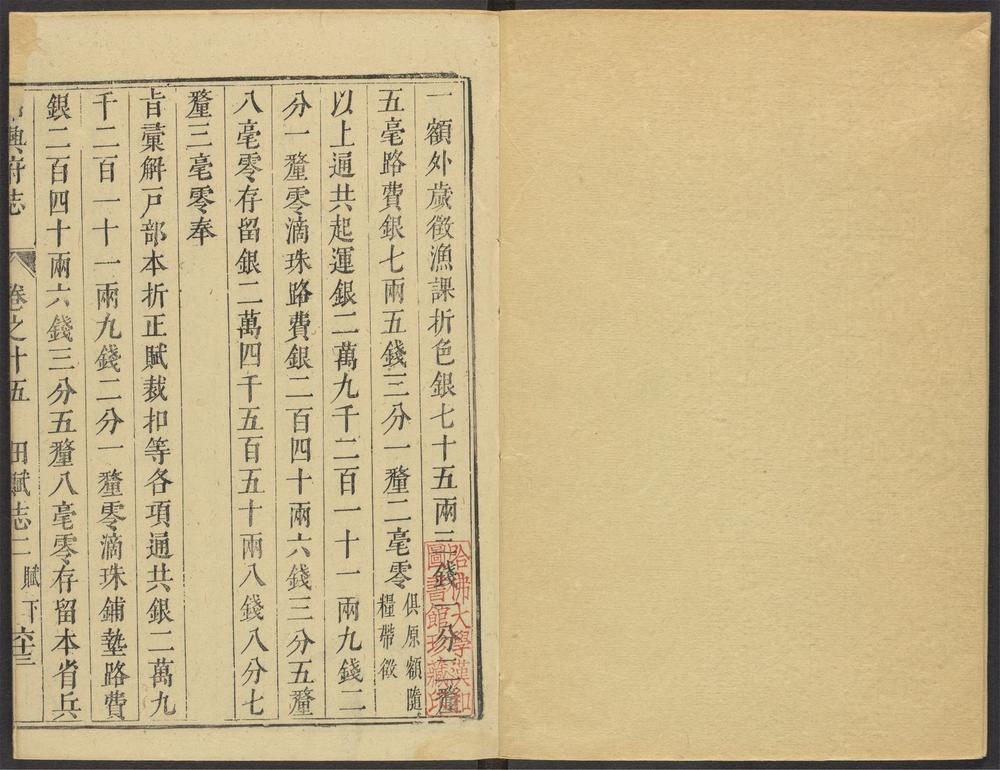 一額外歲徵漁課折色銀七十五兩三錢一分二釐
五毫路費銀七兩五錢三分一釐二毫零俱原額隨糧帶徵
以上通共起運銀二萬九千二百一十一兩九錢二
分一釐零滴珠路費銀二百四十兩六錢三分五釐
八毫零存留銀二萬四千五百五十兩八錢八分七
釐三毫零奉
旨彚解戸部本折正賦裁扣等各項通共銀二萬九
千二百一十一兩九錢二分一釐零滴珠鋪墊路費
銀二百四十兩六錢三分五釐八毫零存留本省兵
興府志 卷之十五 田賦志二 賦下 六十三
哈佛大學漢和圖書館珍藏印